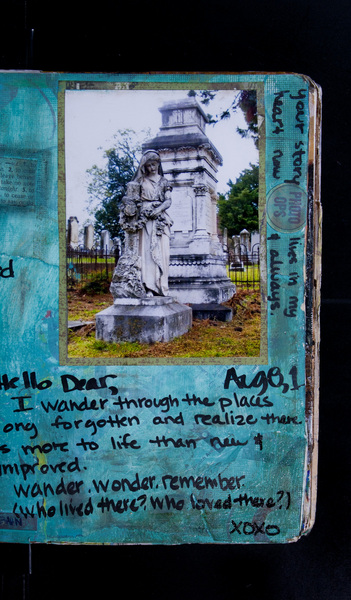 your story lives in my
heart now & always
PHOTO
OPS
Hello Dear,
Aug 8, 1
I wander through the places
ong forgotten and realize there
s more to life than new &
improved.
Wander. wonder. remember.
(who lived there? who loved there?)
XOXO